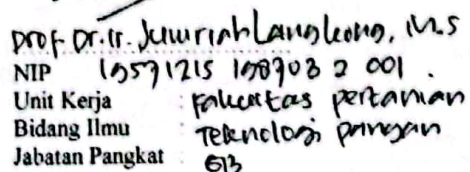 Prof. Dr. Ir. Jumriah Langkong, M.S
NIP 19571215 198703 2 001.
Unit Kerja : Fakultas pertanian
Bidang Ilmu : Teknologi pangan
Jabatan Pangkat :